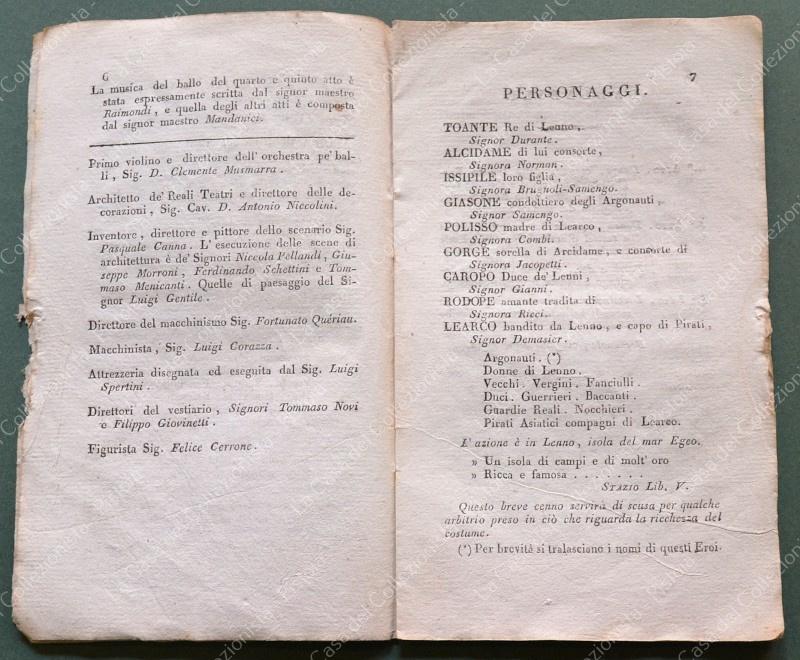 6
La musica del ballo del quarto e quinto atto è
stata espressamente scritta dal signor maestro
Raimondi, e quella degli altri atti è composta
dal signor maestro Mandanici.
Primo violino e direttore dell' orchestra pe' bal-
li, Sig. D. Clemente Musmarra.
Architetto de' Reali Teatri e direttore delle de-
corazioni, Sig. Cav. D. Antonio Niccolini.
Inventore, direttore e pittore dello scenario Sig.
Pasquale Canna. L' esecuzione delle scene di
architettura è de' Signori Niccola Pellandi, Giu-
seppe Morroni, Ferdinando Schettini e Tom-
maso Menicanti. Quelle di paesaggio del Si-
gnor Luigi Gentile.
Direttore del macchinismo Sig. Fortunato Quériau.
Macchinista, Sig. Luigi Corazza.
Attrezzeria disegnata ed eseguita dal Sig. Luigi
Spertini.
Direttori del vestiario, Signori Tommaso Novi
e Filippo Giovinetti.
Figurista Sig. Felice Cerrone.
7
PERSONAGGI.
TOANTE Re di Lenno,
Signor Durante.
ALCIDAME di lui consorte,
Signora Norman.
ISSIPILE loro figlia,
Signora Brugnoli-Samengo.
GIASONE condottiero degli Argonauti,
Signor Samengo.
POLISSO madre di Learco,
Signora Combi.
GORGE sorella di Arcidame, e consorte di
Signora Jacopetti.
CAROPO Duce de' Lenni,
Signor Gianni.
RODOPE amante tradita di
Signora Ricci.
LEARCO bandito da Lenno, e capo di Pirati,
Signor Demasier.
Argonauti. (*)
Donne di Lenno.
Vecchi. Vergini. Fanciulli.
Duci. Guerrieri. Baccanti.
Guardie Reali. Nocchieri.
Pirati Asiatici compagni di Learco.
L' azione è in Lenno, isola del mar Egeo.
» Un isola di campi e di molt' oro
» Ricca e famosa . . . . . . .
Stazio Lib. V.
Questo breve cenno servirà di scusa per qualche
arbitrio preso in ciò che riguarda la ricchezza del
costume.
(*) Per brevità si tralasciano i nomi di questi Eroi.